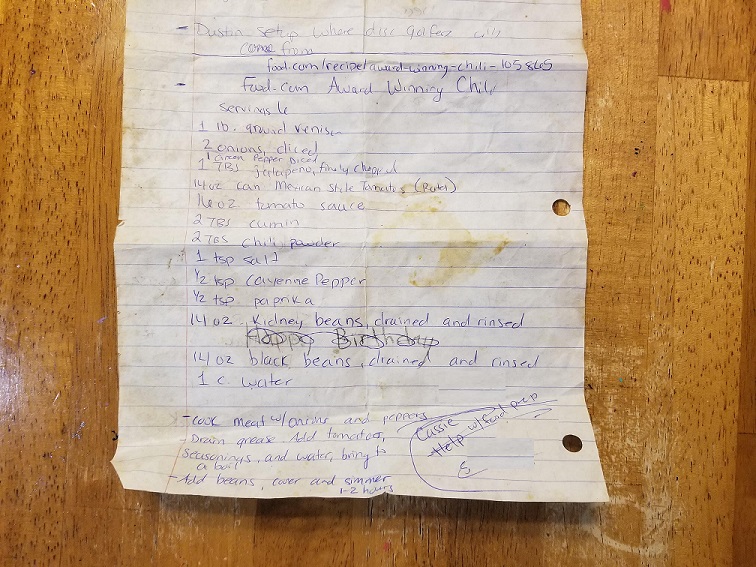 - Dustin setup where disc golfers will
come from
food.com/recipe/award-winning-chili-105865
- Food.com Award Winning Chili
Servings 6
1 lb. ground venison
2 onions, diced
1 Green Pepper Diced
1 TBS jalapeno, finely chopped
14 oz can Mexican Style Tomatoes (Rotel)
16 oz tomato sauce
2 TBS cumin
2 TBS chili powder
1 tsp salt
1/2 tsp Cayenne Pepper
1/2 tsp paprika
14 oz kidney beans, drained and rinsed
Happy Birthday
14 oz black beans, drained and rinsed
1 c. water
- Cook meat w/ onions and peppers
- Drain grease. Add tomatoes,
seasonings, and water, bring to
a boil
- Add beans, cover and simmer
1-2 hours
Cassie
Help w/ food prep